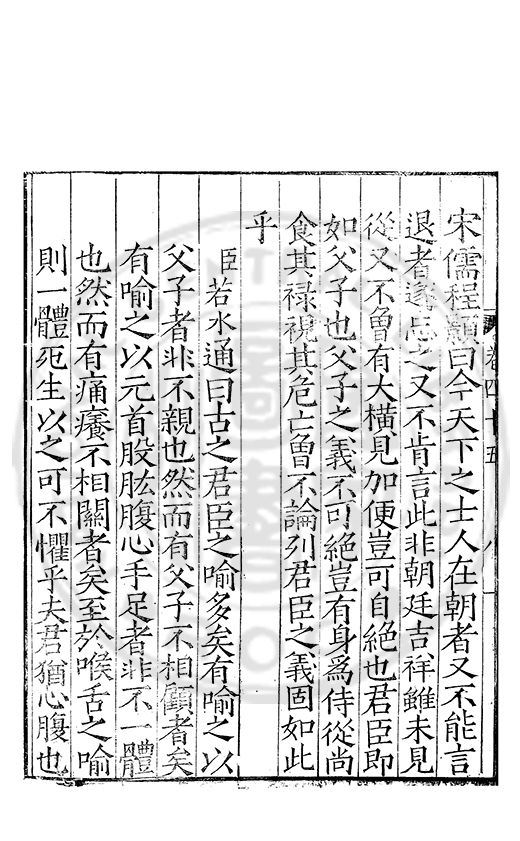 宋儒程顥曰今天下之士人在朝者又不能言
退者遂忘之又不肯言此非朝廷吉祥雖未見
從又不曾有大橫見加便豈可自絶也君臣即
如父子也父子之義不可絶豈有身爲侍從尚
食其祿視其危亡曾不論列君臣之義固如此
乎
臣若水通曰古之君臣之喻多矣有喻之以
父子者非不親也然而有父子不相顧者矣
有喻之以元首股肱腹心手足者非不一體
也然而有痛癢不相關者矣至於喉舌之喻
則一體死生以之可不懼乎夫君猶心腹也
卷四十五
八